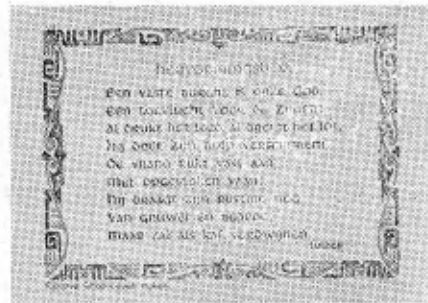 Een vaste burcht is onze God,
Een toevlucht voor de Zijnen!
Al drukt het leed, al dreigt het lot,
Hij doet Zijn hulp verschijnen!
De vijand rukt vast aan
met opgestoken vaan!
Hij draagt zijn rusting nog
van gruwel en bedrog,
maar zal als kaf verdwijnen
Luther